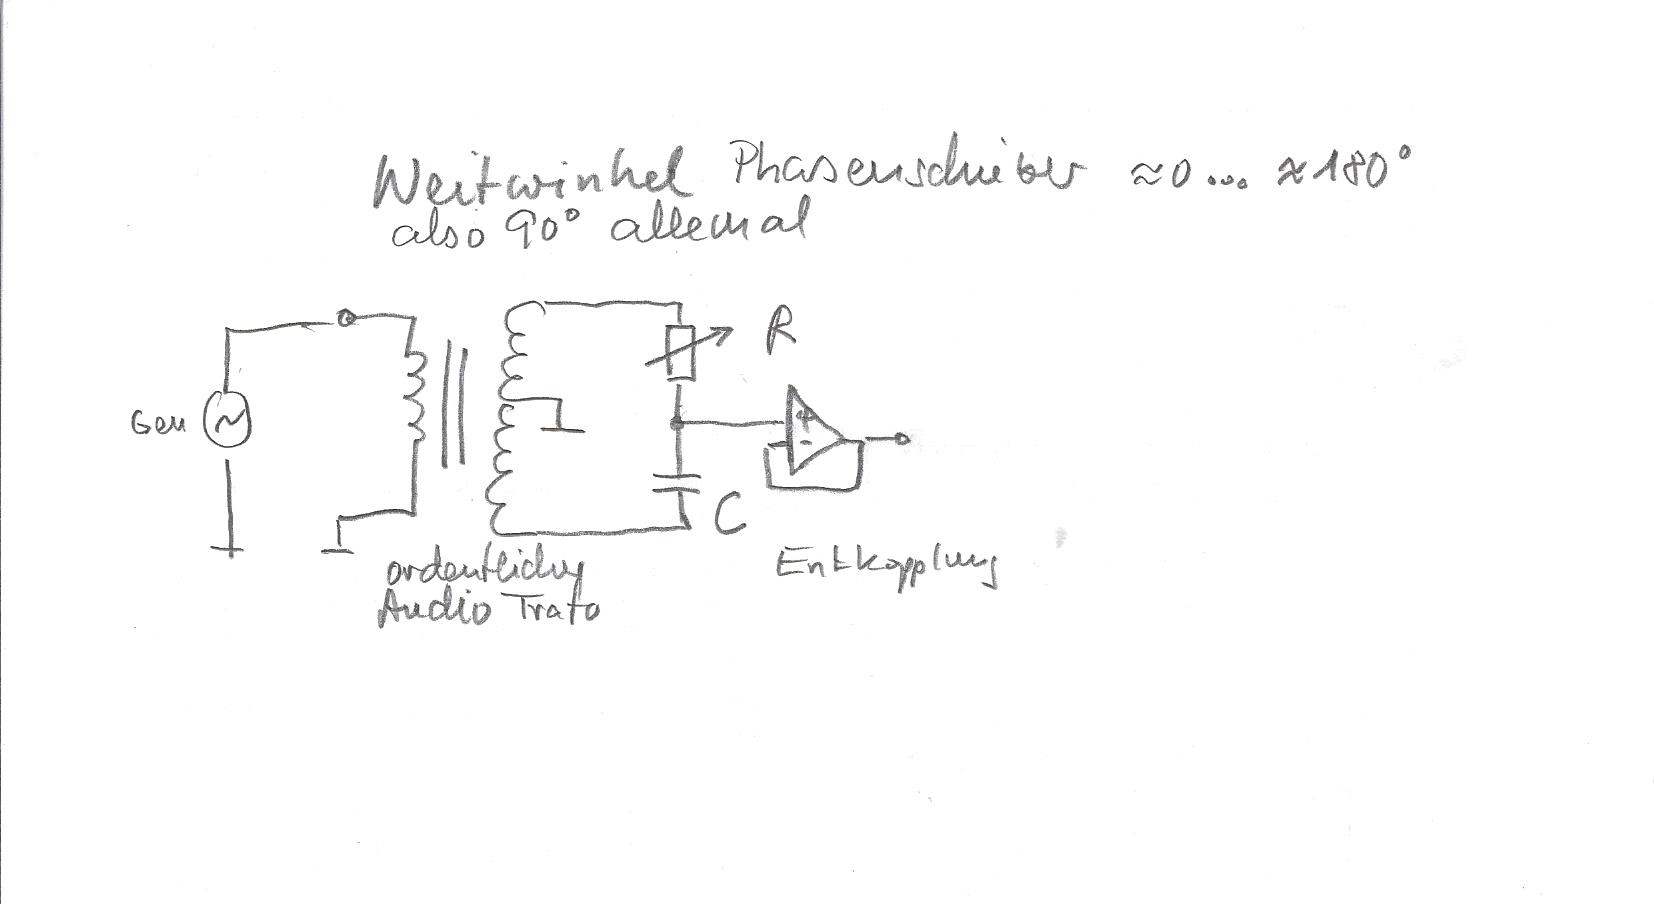 Weitwinkel Phasenschieber ≈0... ≈180°
also 90° allemal
R
Gen
+
-
C
ordentlicher
Audio Trafo
Entkopplung